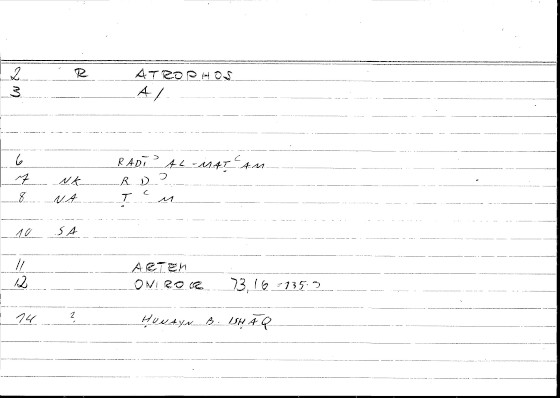 2 R ATROPHOS
3 A/
6 RADĪʾ AL-MAṬʿAM
7 NK R D ʾ
8 NA Ṭ ʿ M
10 SA
11 ARTEM
12 ONIROCR 73,16
14 ? ḤUNAYN B. ISḤĀQ